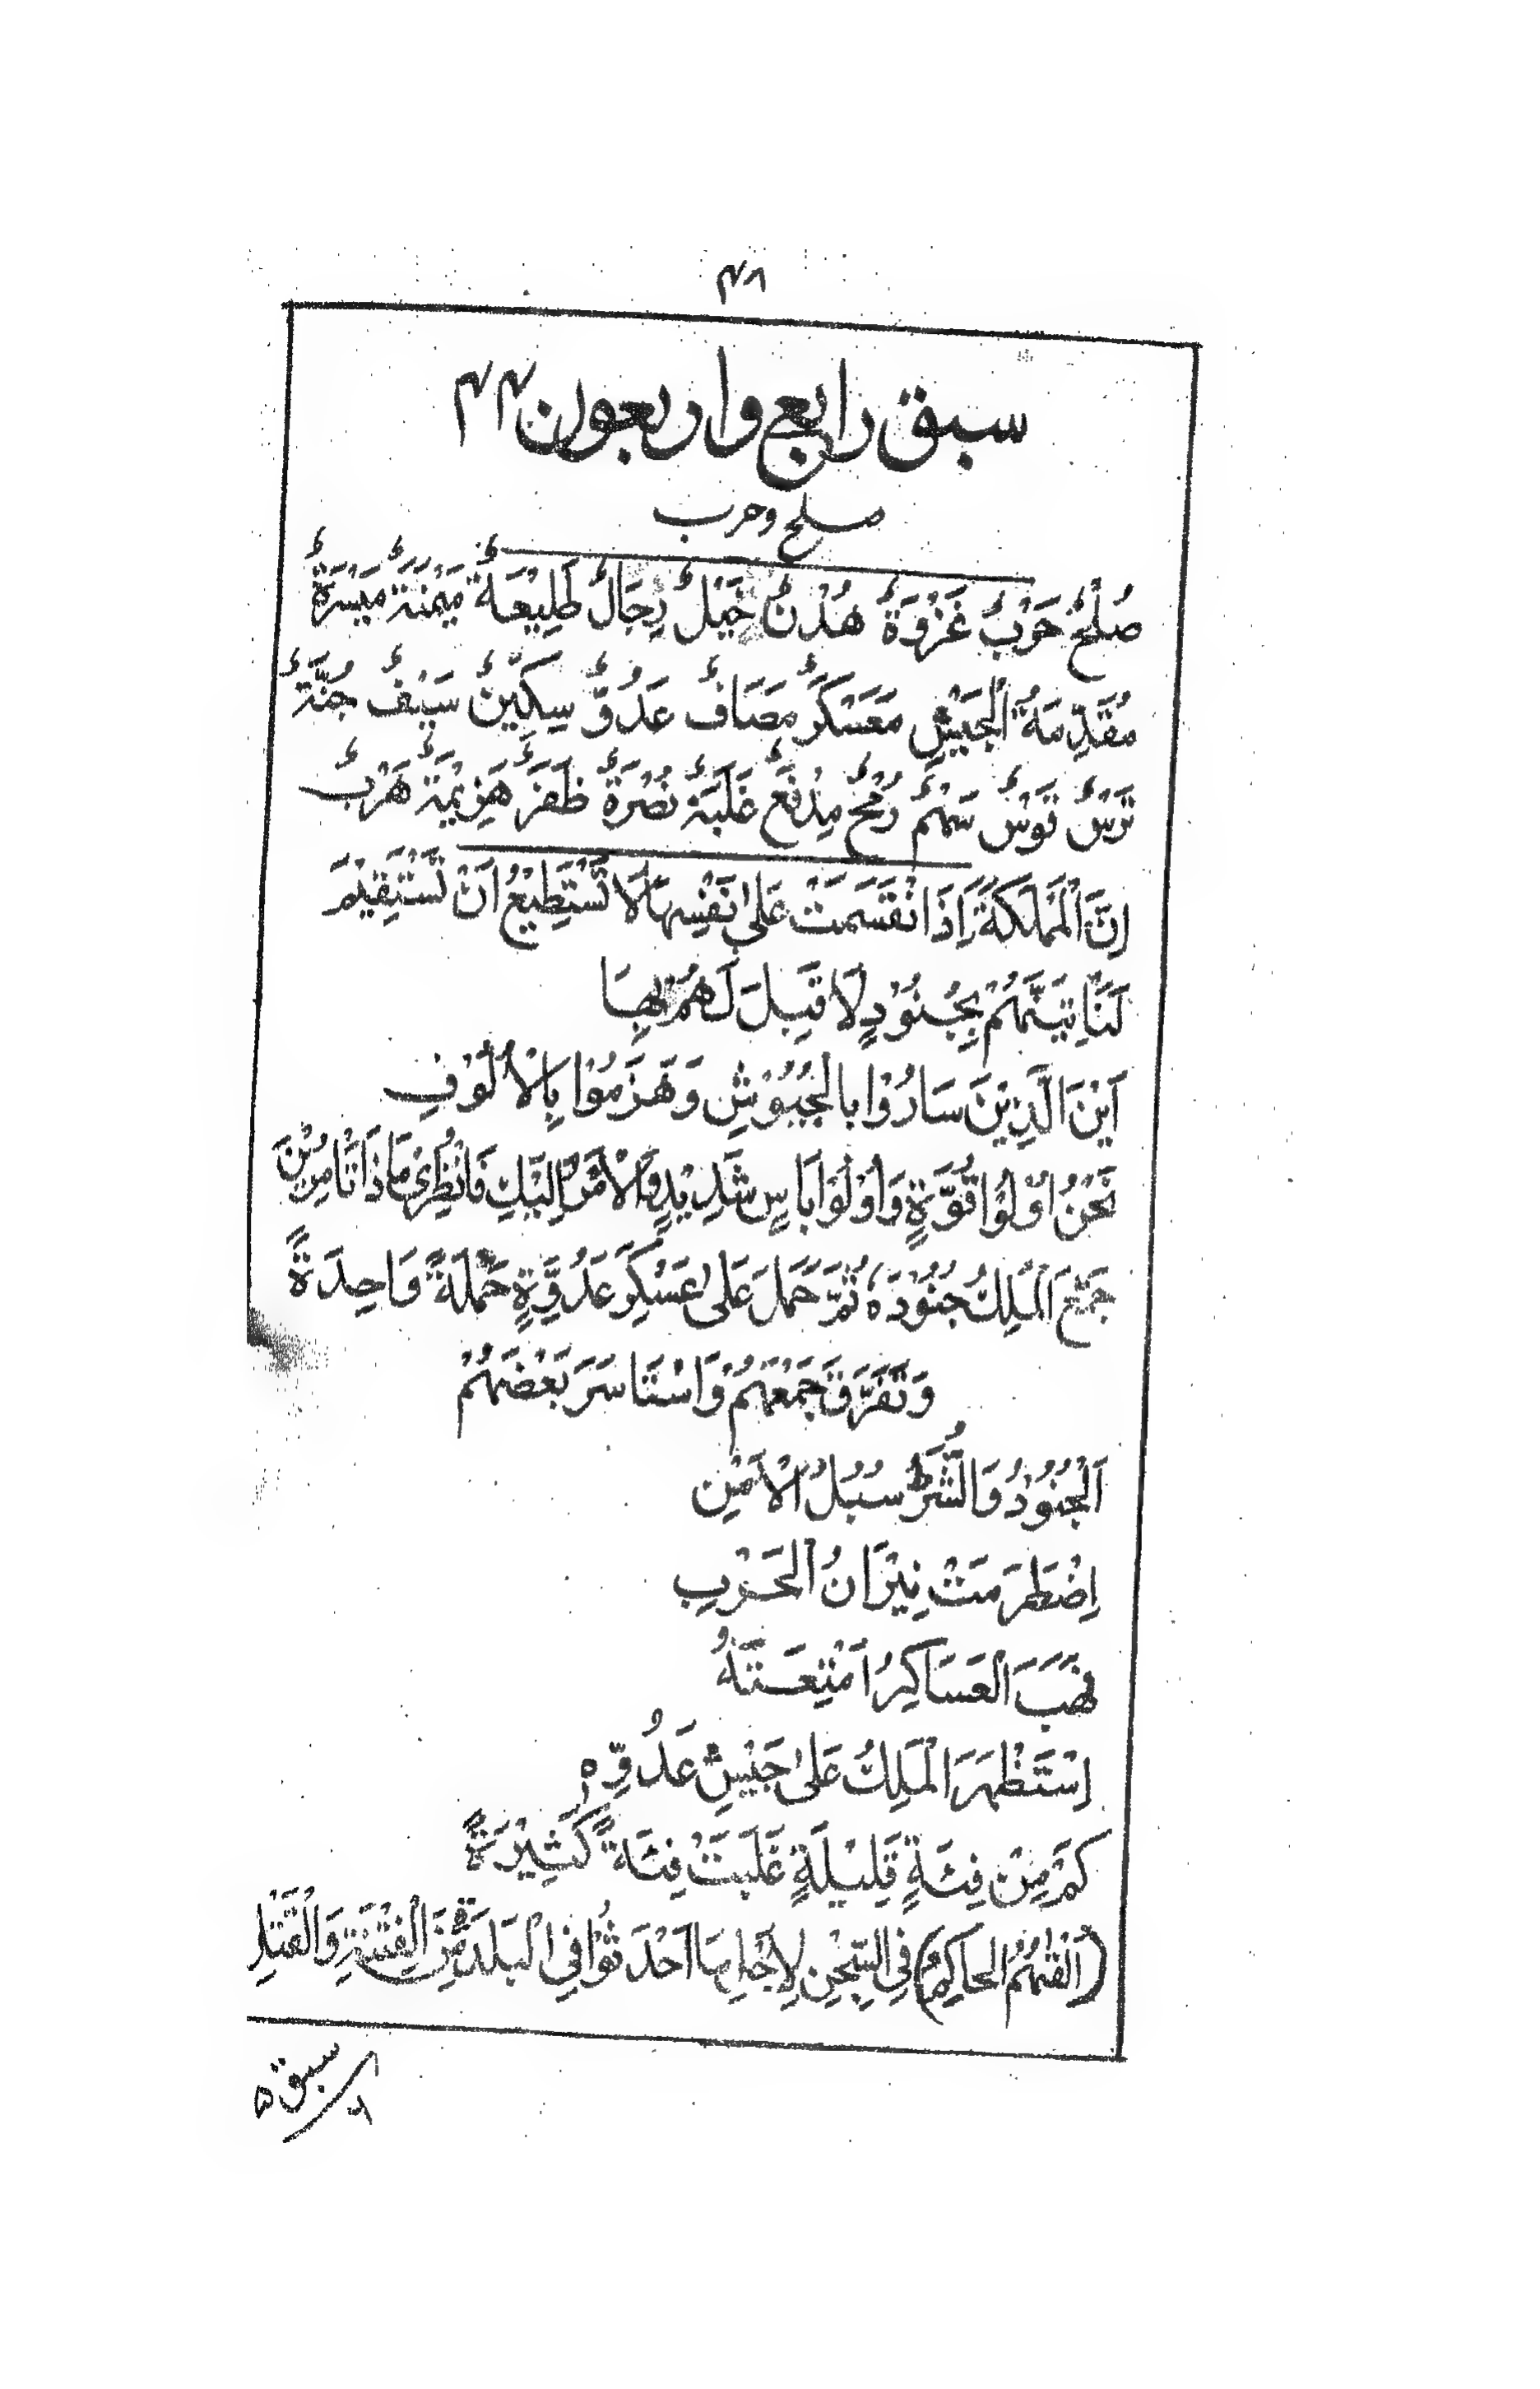 ۴۸
سبق رابع واربعون ۴۴
صلح وحرب
صُلْحٌ حَرْبٌ غَزْوَةٌ هُدْنٌ خَيْلٌ رِجَالٌ طَلِيْعَةٌ مَيْمَنَةٌ مَيْسَرَةٌ
مُقَدِّمَةُ الْجَيْشِ مَعَسْكَرٌ مَصَافٌ عَدُوٌّ سِكِّيْنٌ سَيْفٌ جُنَّةٌ
تُرْسٌ قَوْسٌ سَهْمٌ رُمْحٌ مِدْفَعٌ غَلَبَةٌ نُصْرَةٌ ظَفَرٌ هَزِيْمَةٌ هَرْبٌ
اِنَّ الْمَمْلَكَةَ اِذَا نْقَسَمَتْ عَلٰى نَفْسِهَا لَا تَسْتَطِيْعُ اَنْ تَسْتَقِيْمَ
لَنَاْتِيَنَّهُمْ بِجُنُوْدٍ لَا قِبَلَ لَهُمْ بِهَا
اَيْنَ الَّذِيْنَ سَارُوْا بِالْجُيُوْشِ وَهَزَمُوْا بِالْاُلُوْفِ
نَحْنُ اُوْلُوْا قُوَّةٍ وَاُوْلُوْا بَاْسٍ شَدِيْدٍ وَالْاَمْرُ اِلَيْكِ فَانْظُرِىْ مَاذَا تَاْمُرِيْنَ
جَمَعَ الْمَلِكُ جُنُوْدَهٗ ثُمَّ حَمَلَ عَلٰى عَسْكَرِ عَدُوِّهٖ حَمْلَةً وَاحِدَةً
وَتَفَرَّقَ جَمْعَهُمْ وَاسْتَاسَرَ بَعْضَهُمْ
اَلْجُنُوْدُ وَالشُّرَطُ سُبُلُ الْاَمْنِ
اِضْطَرَمَتْ نِيْرَانُ الْحَرْبِ
نَهَبَ الْعَسَاكِرُ اَمْتِعَتَهُ
اِسْتَظْهَرَ الْمَلِكُ عَلٰى جَيْشِ عَدُوِّهٖ
كَمْ مِنْ فِئَةٍ قَلِيْلَةٍ غَلَبَتْ فِئَةً كَثِيْرَةً
(اَلْقٰهُمُ الْحَاكِمُ) فِى السِّجْنِ لِاَجْلِ مَا اَحْدَثُوْا فِى الْبَلَدِ مِنَ الْفِتْنَةِ وَالْقَتْلِ
سبق ۵